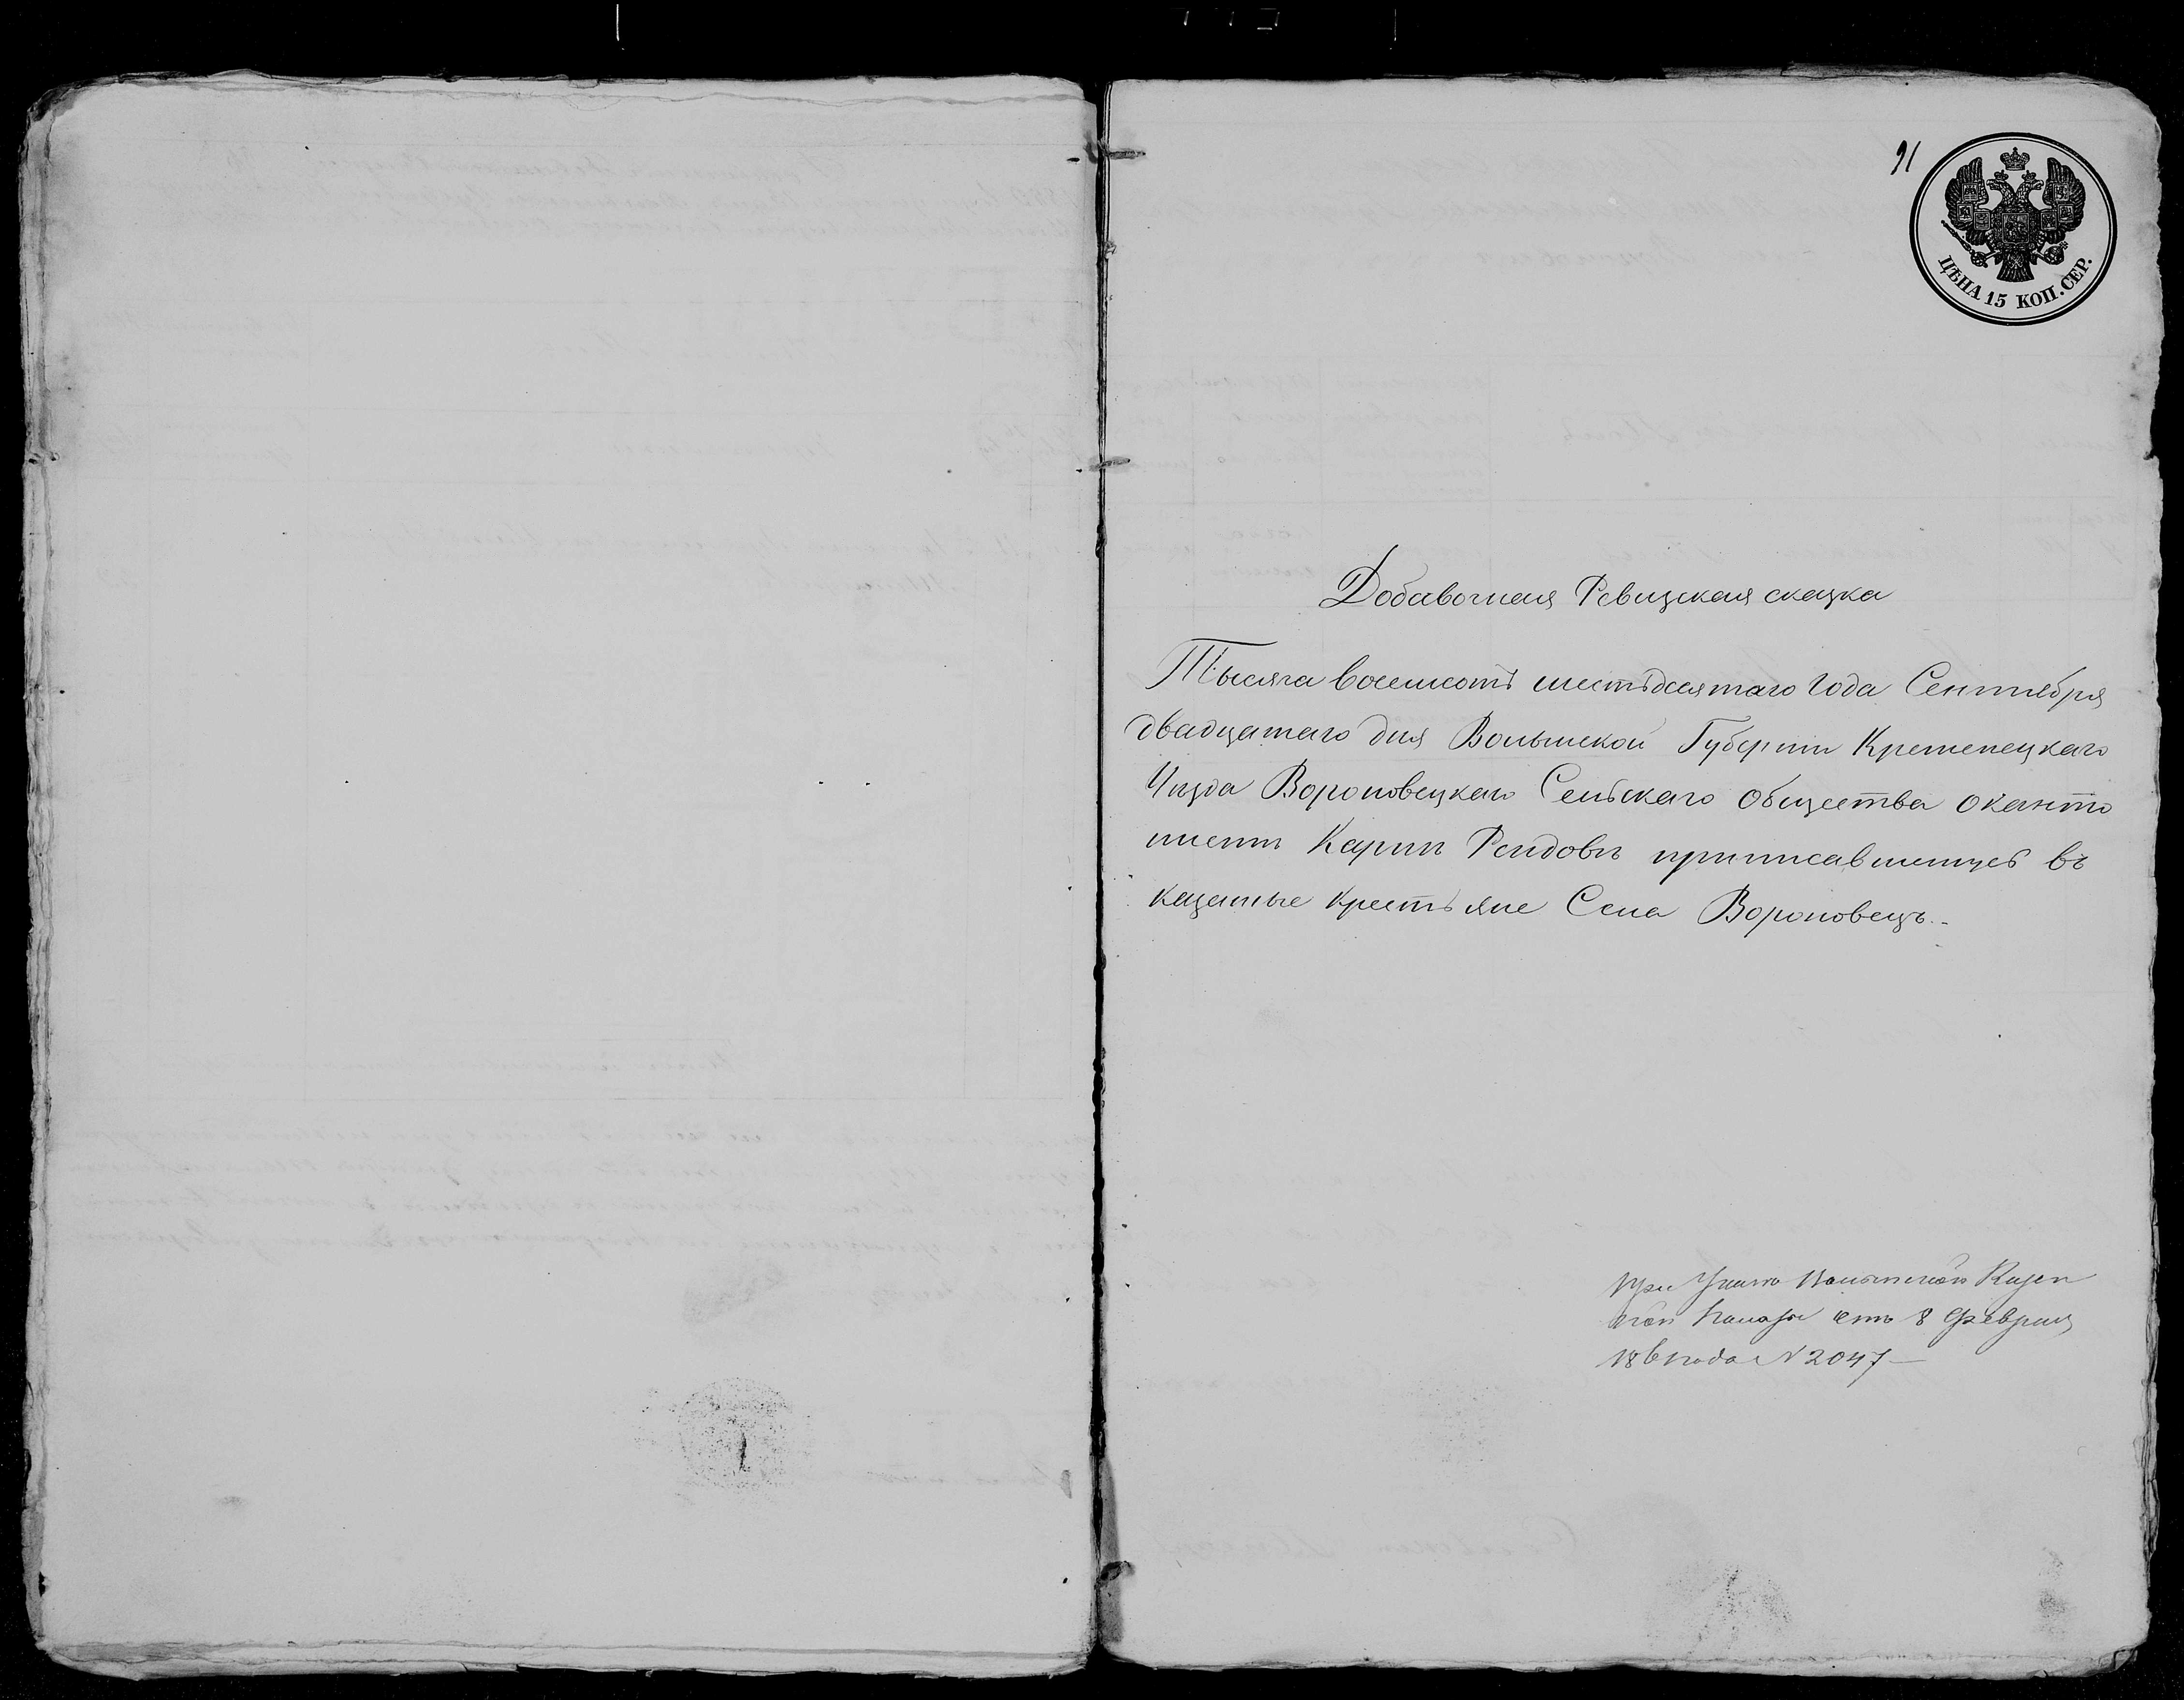 91
ЦѢНА 15 КОП. СЕР.
Добавочная Ревизская сказка
Тысяча восемсотъ шестьдесятаго Года Сентября
двадцатаго дня Волынской Губерніи Кременецкаго
Уѣзда Вороновецкаго Сельскаго Общества о канто
нистѣ Карпѣ приписавшемся въ
казенные крестьяне Села Вороновецъ.-
при Указѣ Волынской Казен
ной Палаты отъ 8 Февраля
1861 года N 2047